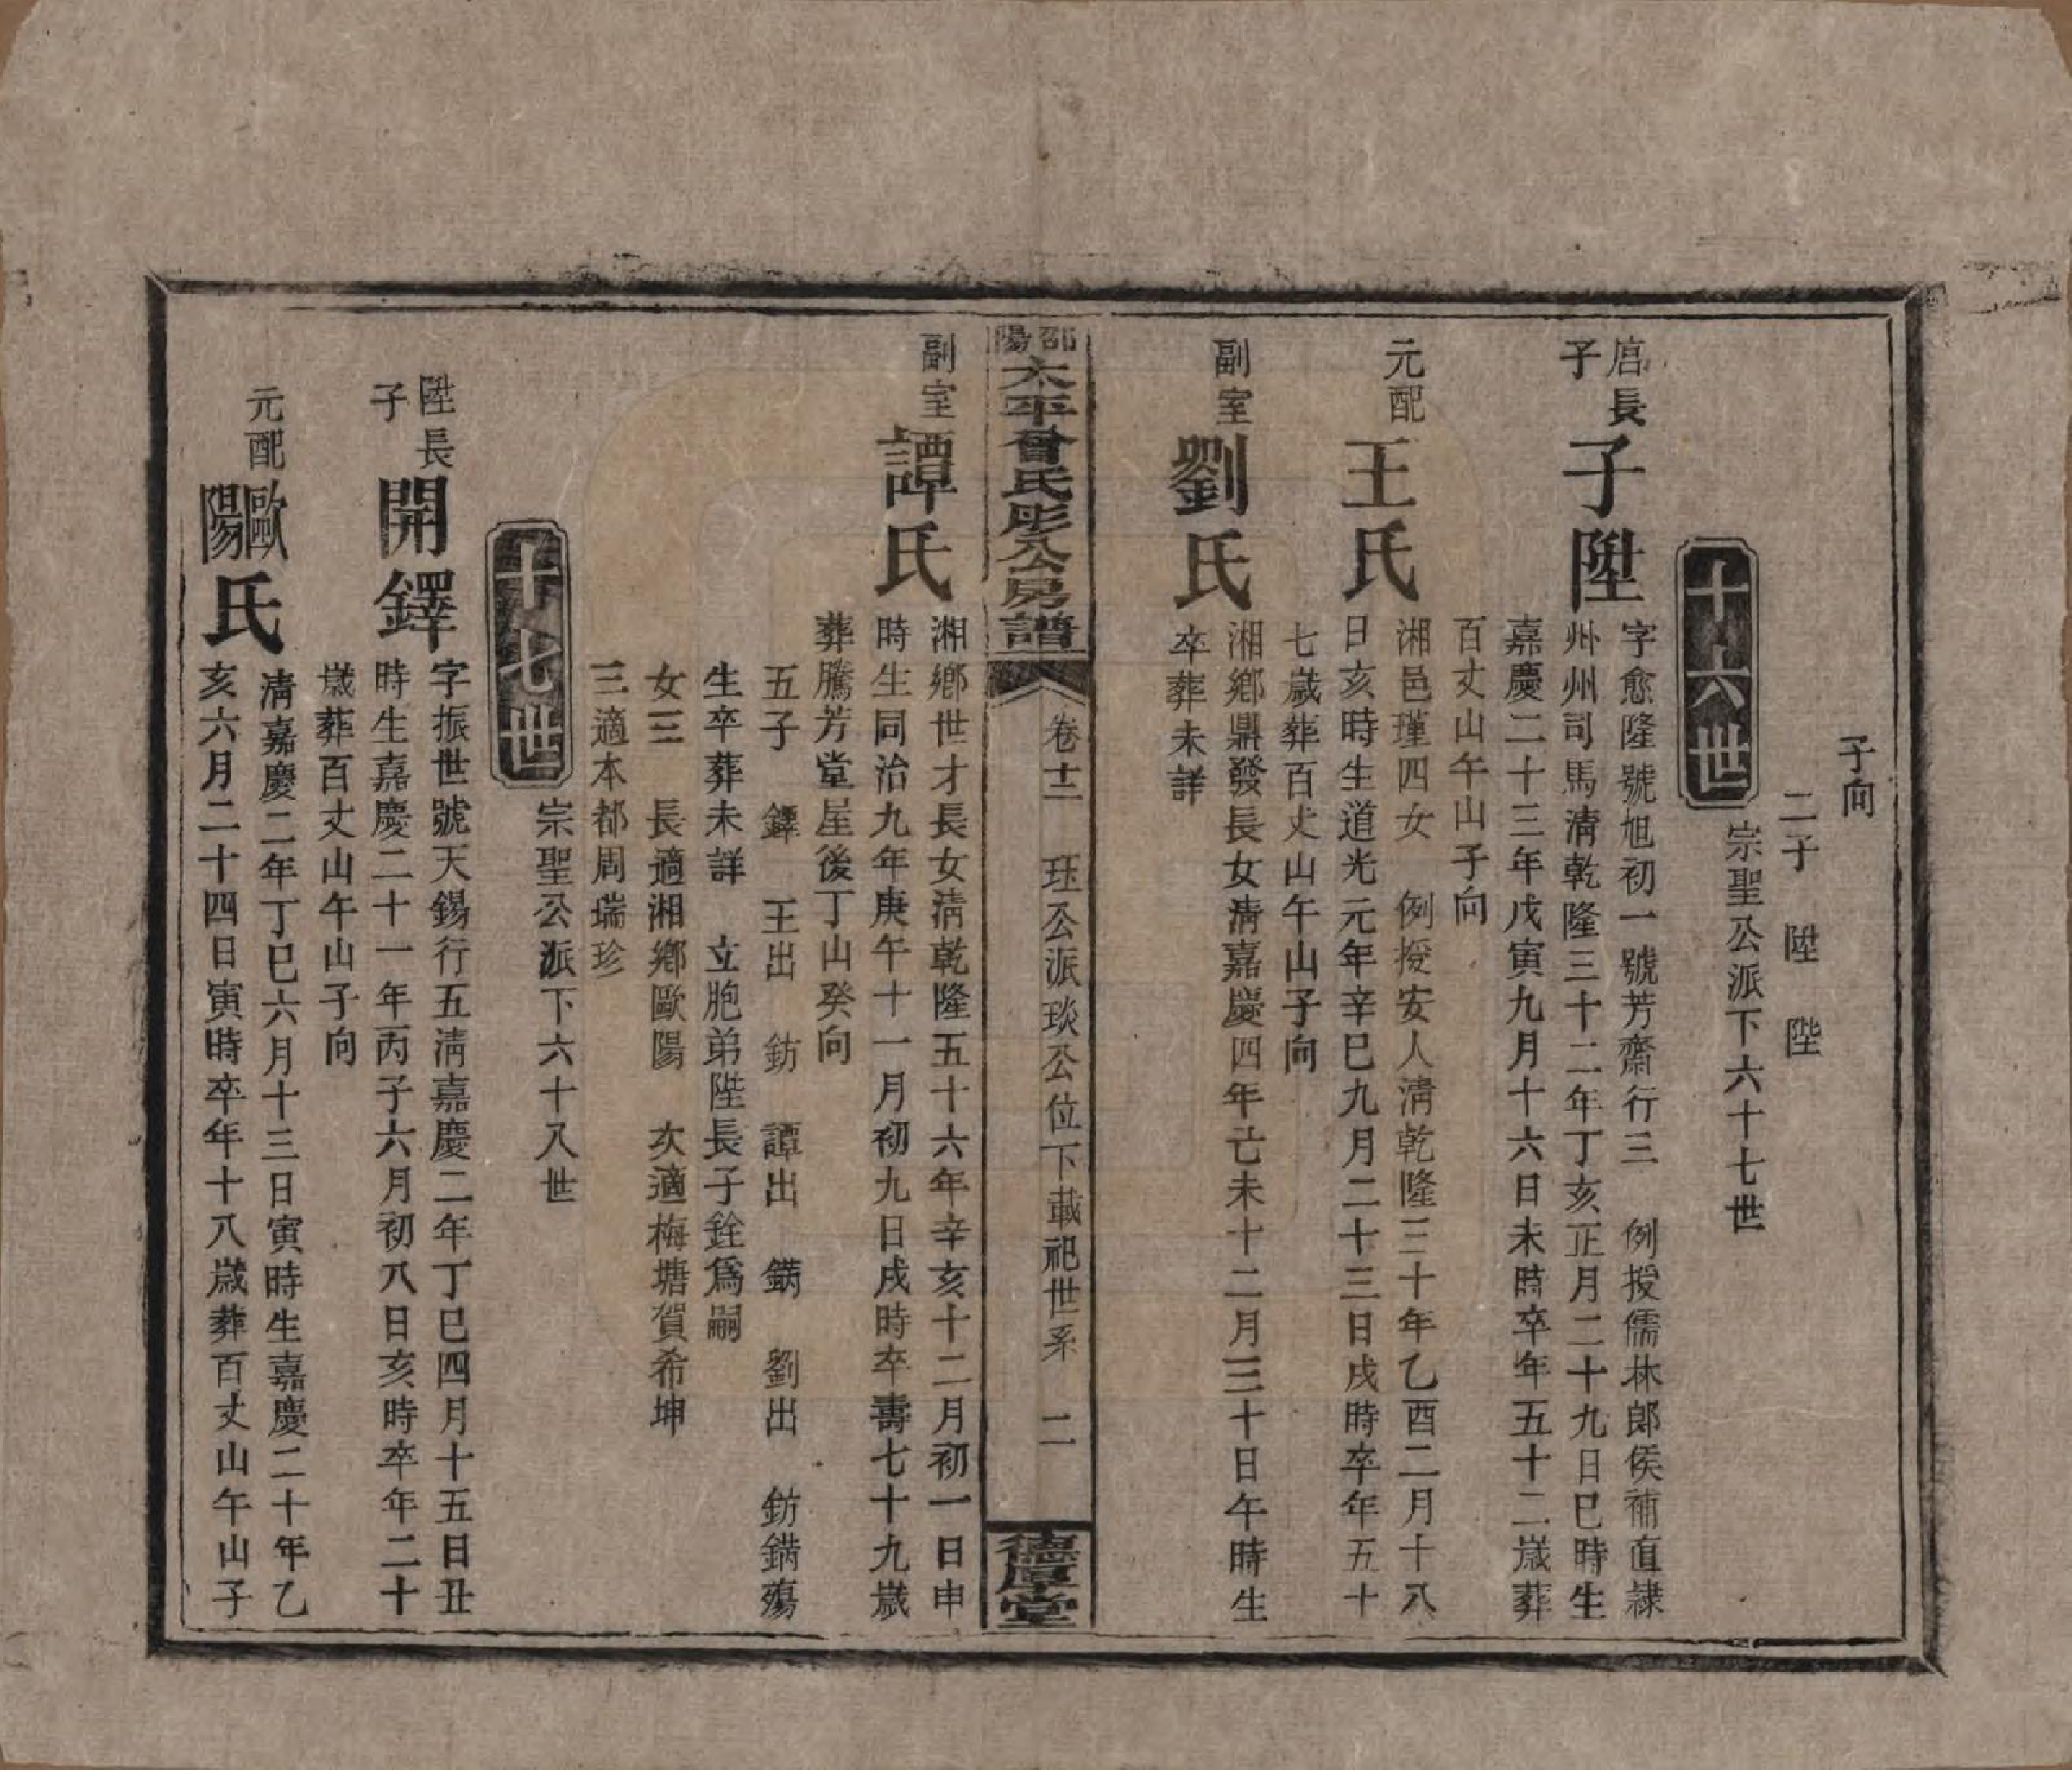 子向
二子　陞　陛
十六世
宗聖公派下六十七世
㝛長子
子陞
字愈隆號旭初一號芳齋行三　例授儒林郎侯補直隸
州州司馬清乾隆三十二年丁亥正月二十九日巳時生
嘉慶二十三年戊寅九月十六日未時卒年五十二歲葬
百丈山午山子向
元配
王氏
湘邑瑾四女　例授安人清乾隆三十年乙酉二月十八
日亥時生道光元年辛巳九月二十三日戌時卒年五十
七歲葬百丈山午山子向
副室
劉氏
湘鄉鼎發長女清嘉慶四年己未十二月三十日午時生
卒葬未詳
邵陽
太平曾氏彤公房譜
卷十二　珏公派琰公位下載祀世系　二
德厚堂
副室
譚氏
湘鄉世才長女清乾隆五十六年辛亥十二月初一日申
時生同治九年庚午十一月初九日戌時卒壽七十九歲
葬騰芳堂屋後丁山癸向
五子　鐸　王出　鈁　譚出　鏋　劉出　鈁鏋殤
生卒葬未詳　立胞弟陛長子銓爲嗣
女三　長適湘鄉歐陽　次適梅塘賀希坤
三適本都周瑞珍
十七世
宗聖公派下六十八世
陞長子
開鐸
字振世號天錫行五清嘉慶二年丁巳四月十五日丑
時生嘉慶二十一年丙子六月初八日亥時卒年二十
歲葬百丈山午山子向
元配
歐陽氏
清嘉慶二年丁巳六月十三日寅時生嘉慶二十年乙
亥六月二十四日寅時卒年十八歲葬百丈山午山子